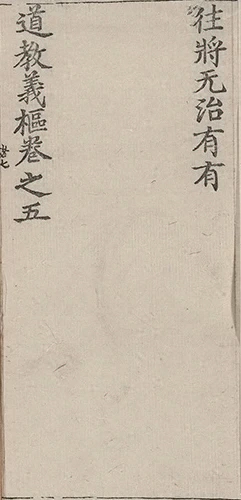 往將无治有有
道教義樞卷之五